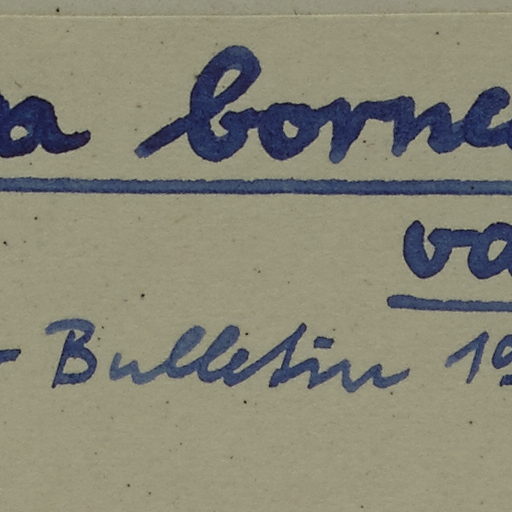 a borne
va
- Bulletin 19